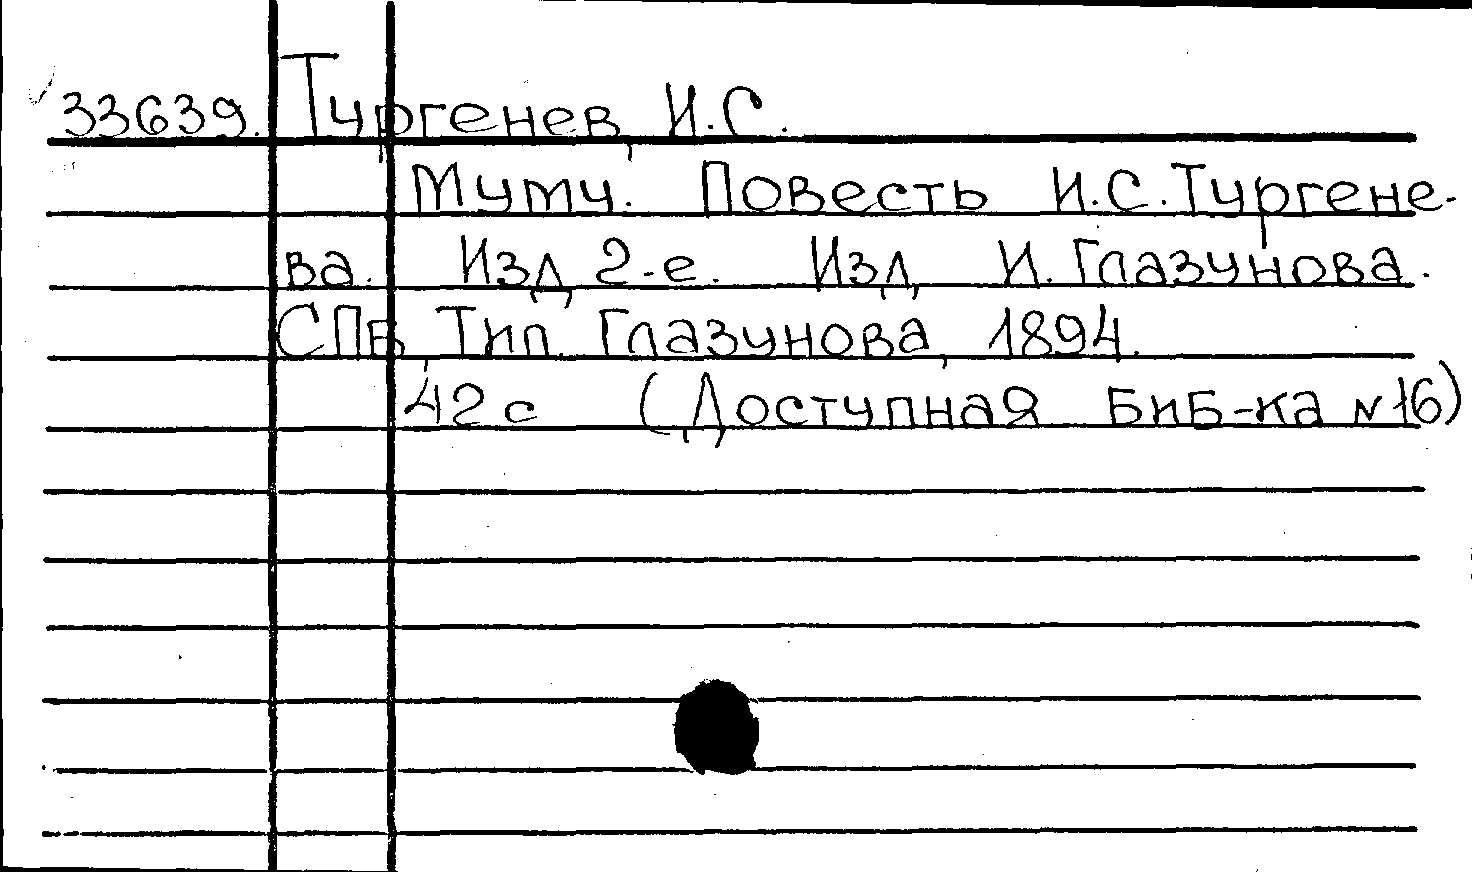 33639. Тургенев, И.С.
Муму. Повесть И.С.Тургене-
ва. Изд. 2-е. Изд. И.Глазунова.
СПБ, Тип. Глазунова, 1894.
42 с (Доступная биб-ка №16)